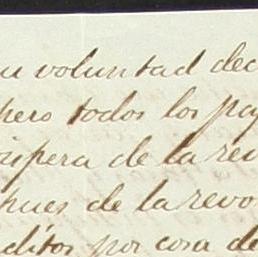 su voluntad dec
pero todos los pa
vispera de la rev
pues de la revo
ditos por cosa de